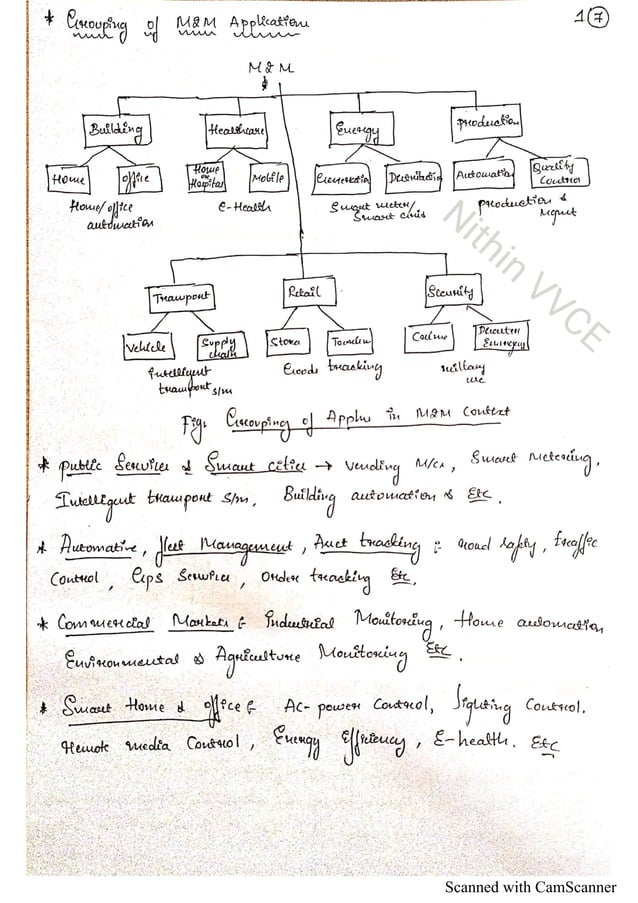 * Grouping of M2M Applications
1 7
M2M
Building
Healthcare
Energy
production
Home
office
Home or Hospital
Mobile
Generation
Distribution
Automation
Quality Control
Home/office automation
E-Health
Smart meter/ Smart Grids
production & Mgmt
Transport
Retail
Security
Vehicle
Supply chain
Stores
Emergency
Intelligent transport s/m
Goods tracking
military use
Fig: Grouping of Applns in M2M Context
* public Services & Smart cities → vending M/cs, Smart Metering,
Intelligent transport s/m, Building automation & Etc.
* Automative, fleet Management, Asset tracking :- road safety, traffic
Control, Gps Services, order tracking Etc.
* Commercial Markets :- Industrial Monitoring, Home automation
Environmental & Agriculture Monitoring Etc.
* Smart Home & office :- AC-power Control, lighting Control.
remote media Control, Energy Efficiency, E-health. Etc
Nithin VVCE
Scanned with CamScanner